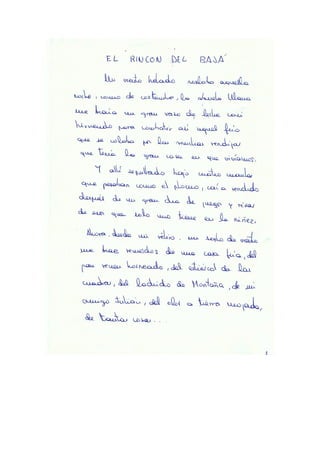 EL RINCON DEL BAJA
Un viento helado soplaba aquella
noche, como de costumbre, la abuela Ulana
me traía un gran vaso de leche casi
hirviendo para combatir así aquel frío
que se colaba por las muchas rendijas
que tenía la gran casa en que vivíamos.
Y allí sepultado bajo cuatro mantas
que pesaban como el plomo, caía rendido
después de un gran día de juego y risas
de esos que solo uno tiene en la niñez.
Ahora, desde mi retiro, un soplo de viento
me trae recuerdos de una casa fría, del
pan recien horneado, del estiércol de las
cuadras, del ladrido de Montaña, de mi
amigo Julian, del olor a tierra mojada,
de tantas cosas...
1